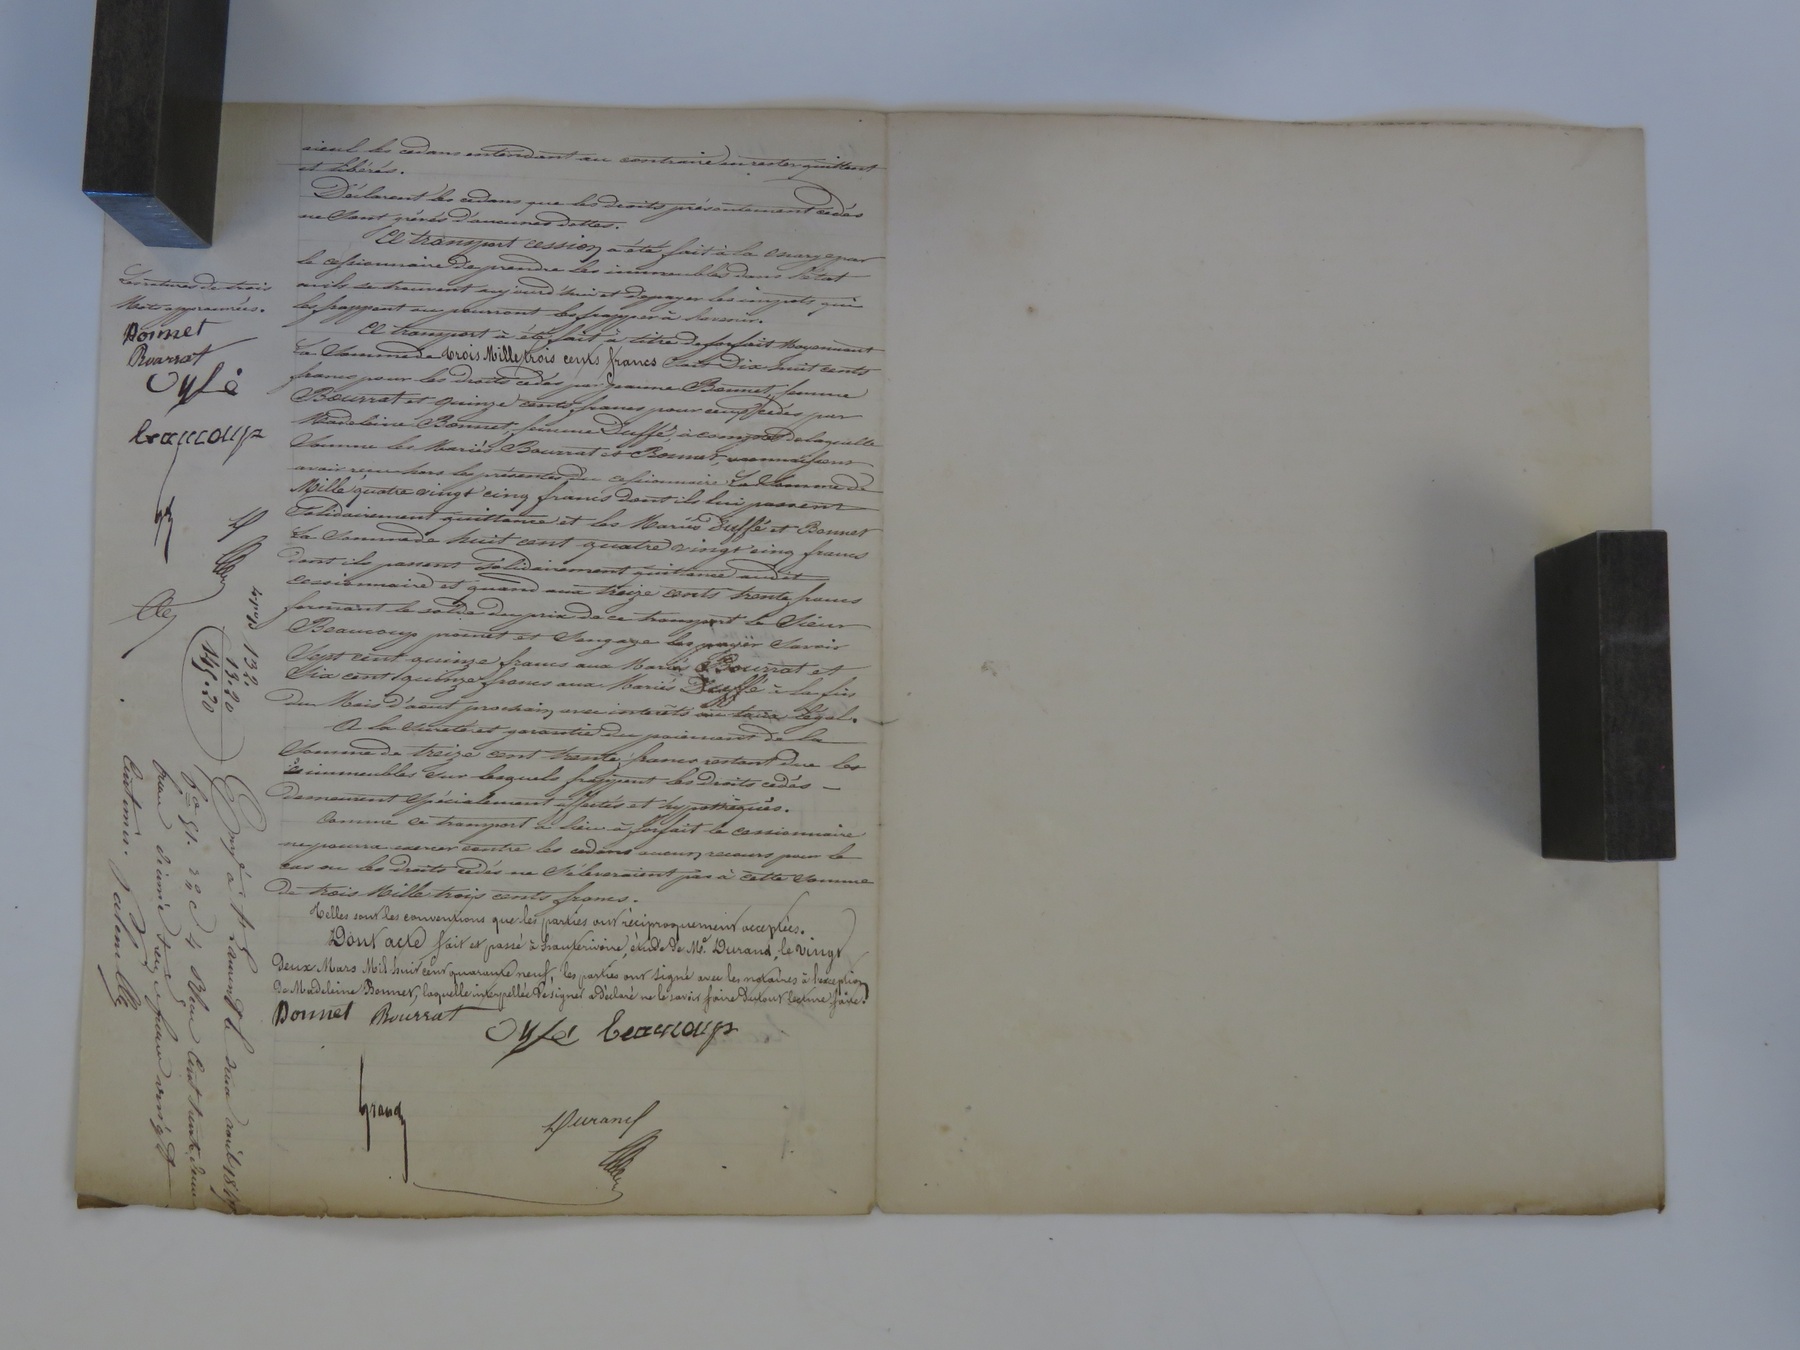 aieul les cedans entendant au contraire en rester quittent
et libérés.
Déclarent les cedans que les droits présentement cédés
ne sont grévés d'aucunes dettes.
Ce transport cession a été fait à la charge par
le cessionnaire de prendre les immeubles dans l'état
où ils se trouvent aujourd'hui et de payer les impots qui
les frappent ou pourront les frapper à l'avenir.
Ce transport à été fait à titre de forfait Moyennant
La Somme de trois Mille trois cents francs Soit Dix huit cents
francs pour les droits cédés par Jeanne Bonnet, femme
Bourrat et quinze cents francs pour ceux cédés par
Madeleine Bonnet, femme Duffé, à compte de laquelle
Somme les Mariés Bourrat et Bonnet, reconnaissent
avoir reçu hors les présentes du cessionnaire La Somme de
Mille quatre vingt cinq francs dont ils lui passent
Solidairement quittance et les Mariés Duffé et Bonnet
La Somme de huit cent quatre vingt cinq francs
dont ils passent Solidairement quittance audit
cessionnaire et quand aux treize cents trente francs
formant le solde du prix de ce transport le Sieur
Beaucoup promet et s'engage les payer Savoir
Sept cent quinze francs aux Mariés Bourrat et
Six cent quinze francs aux Mariés Duffé à la fin
du Mois d'aout prochain avec interêts au taux légal.
A la Sureté et garantie du paiement de la
Somme de treize cent trente francs restant due les
immeubles Sur lesquels frappent les droits cédés
demeurent Spécialement affectés et hypothéqués.
Comme ce transport a lieu à forfait le cessionnaire
ne pourra exercer contre les cedans aucun recours pour le
cas ou les droits cédés ne s'éleveraient pas à cette Somme
de trois Mille trois cents francs.
Telles sont les conventions que les parties ont réciproquement acceptées.
Dont acte fait et passé à hauterivoire, étude de Me. Durand, le vingt
deux Mars Mil huit cent quarante neuf, les parties ont signé avec les notaires à l'exception
de Madeleine Bonnet, laquelle interpellée de signer a déclaré ne le savoir faire du tout lecture faite.
Bonnet Bourrat Dyfé beaucoup
Grand
Durand
Mots approuvées.
Bonnet
Bourrat
Dyfé
beaucoup
132.
13.20
145.20
Cent trente deux
francs vingt
centimes.